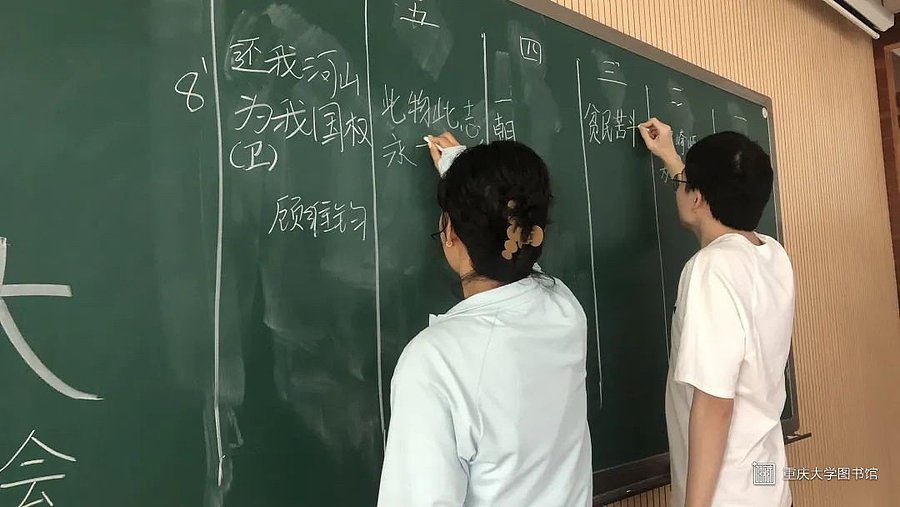 8'
还我河山
为我国权
(卫)
顾维钧
五
此物此志
永
四
朝
三
贫民苦斗
二
一
大
会
重庆大学图书馆